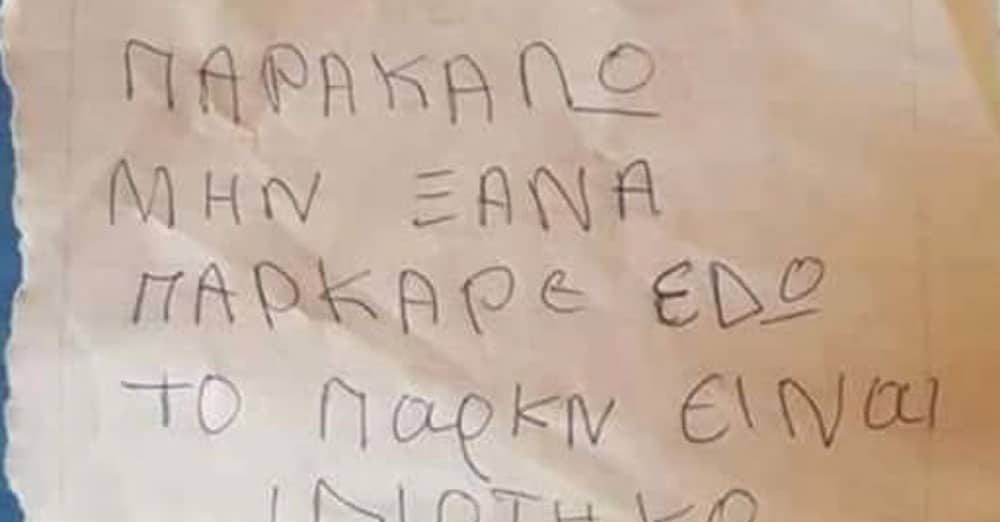 ΠΑΡΑΚΑΛΩ
ΜΗΝ ΞΑΝΑ
ΠΑΡΚΑΡΕ ΕΔΩ
ΤΟ ΠαρΚΝ ΕΙΝαι
ΙΔΙΟΤΗΚΟ